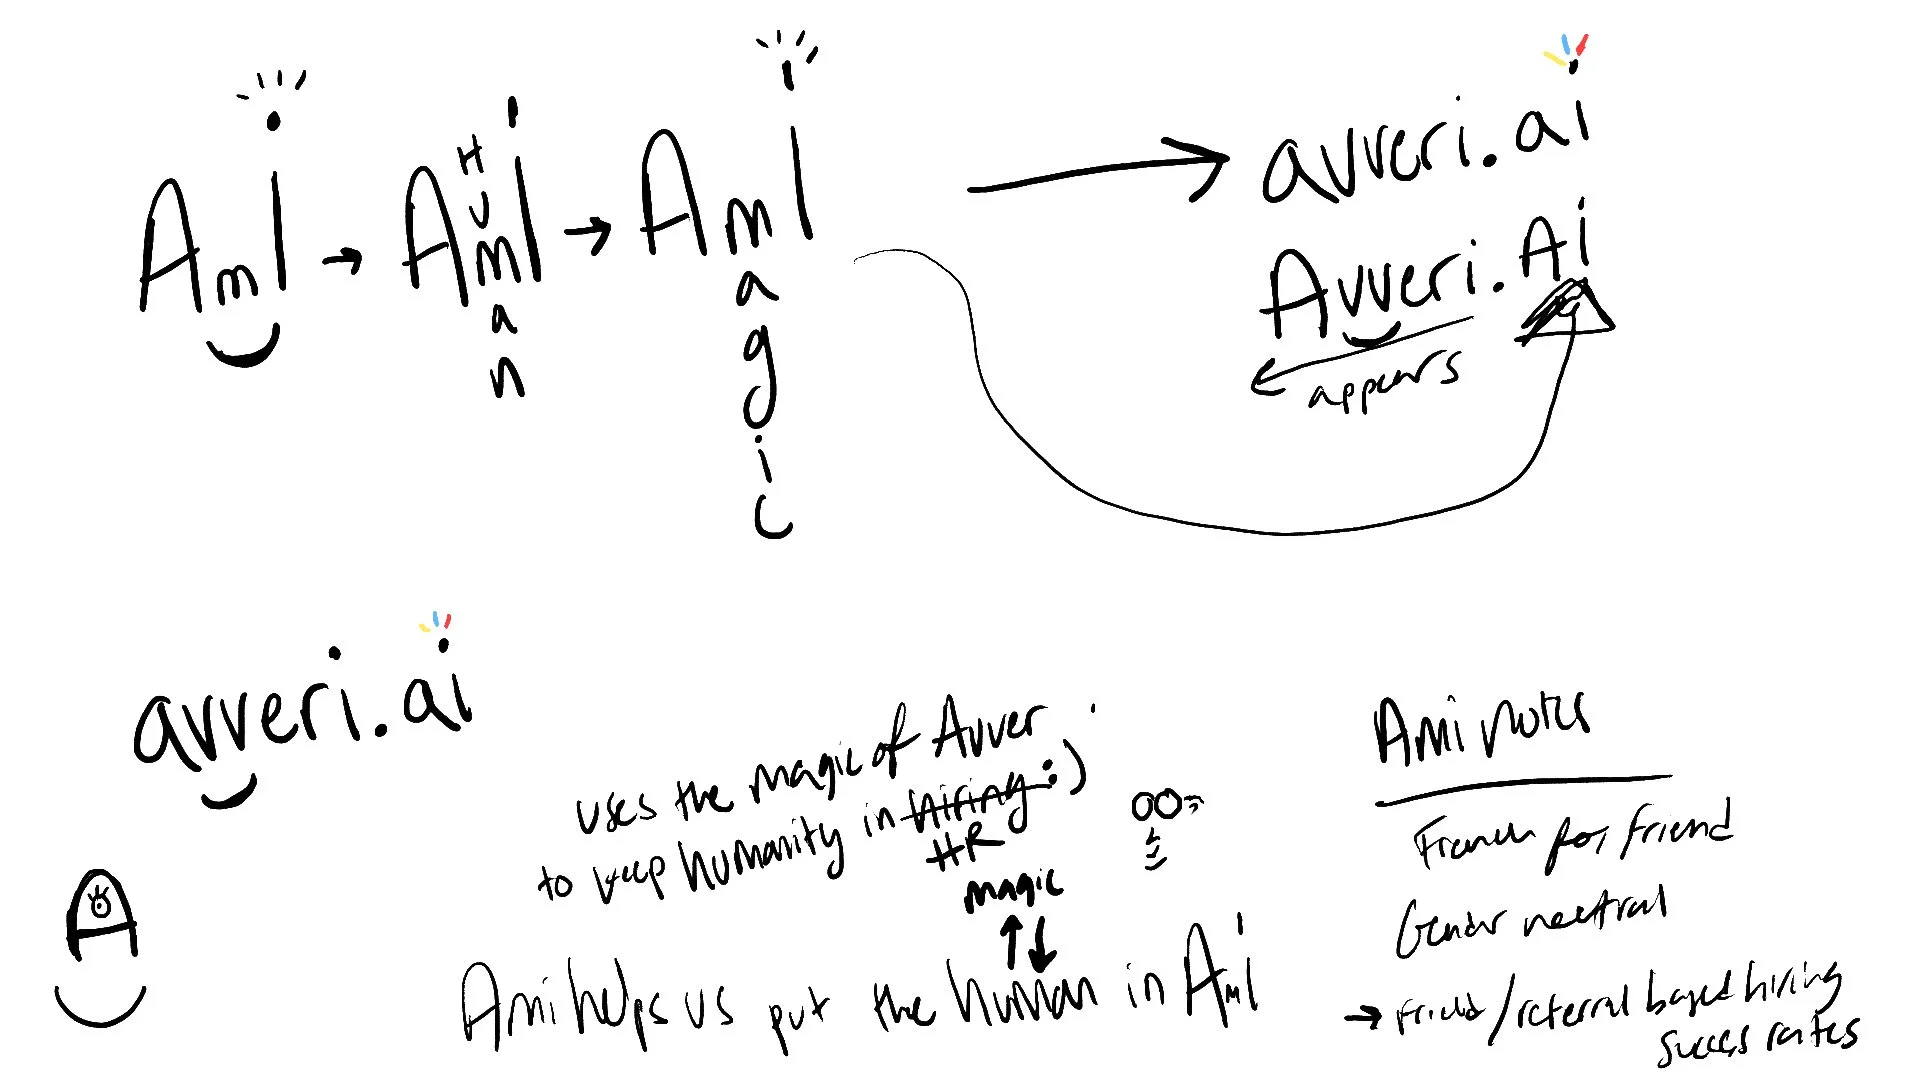 AmI
HUman
AmI
magic
AmI
avveri.ai
Avveri.Ai
appears
avveri.ai
uses the magic of Avver
to keep humanity in hiring :)
HR
magic
Ami helps us put the human in AmI
A
Ami notes
French for friend
Gender neutral
→ friend/referral based hiring
success rates